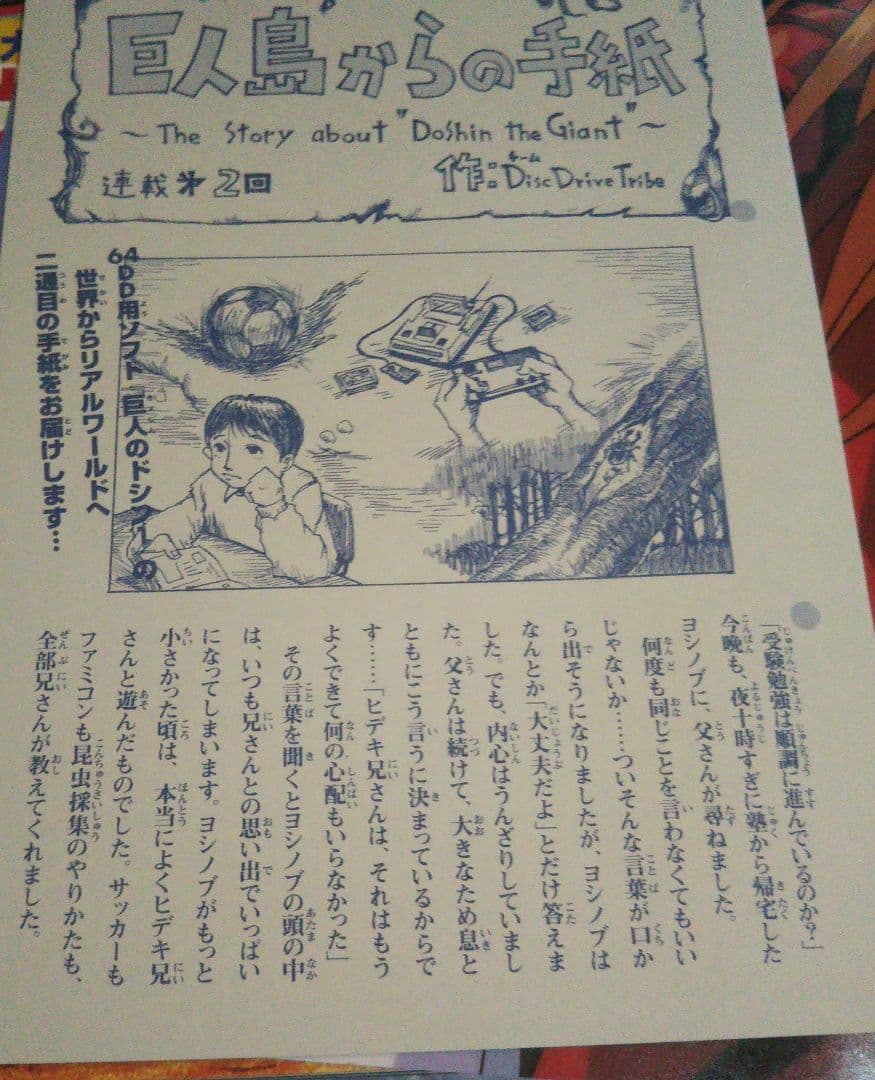 巨人島からの手紙
～The Story about "Doshin the Giant"～
連載第2回
作:Disc Drive Tribe
64DD用ソフト『巨人のドシン1』の
世界からリアルワールドへ
二通目の手紙をお届けします…
「受験勉強は順調に進んでいるのか?」
今晩も、夜十時すぎに塾から帰宅した
ヨシノブに、父さんが尋ねました。
何度も同じことを言わなくてもいい
じゃないか……ついそんな言葉が口か
ら出そうになりましたが、ヨシノブは
なんとか「大丈夫だよ」とだけ答えま
した。でも、内心はうんざりしていまし
た。父さんは続けて、大きなため息と
ともにこう言うに決まっているからで
す……「ヒデキ兄さんは、それはもう
よくできて何の心配もいらなかった」
その言葉を聞くとヨシノブの頭の中
は、いつも兄さんとの思い出でいっぱい
になってしまいます。ヨシノブがもっと
小さかった頃は、本当によくヒデキ兄
さんと遊んだものでした。サッカーも
ファミコンも昆虫採集のやりかたも、
全部兄さんが教えてくれました。